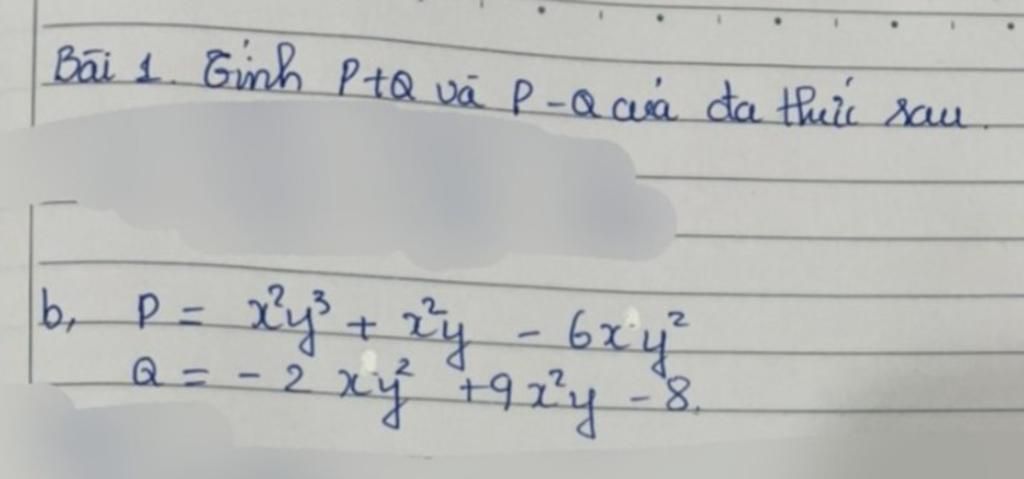 Bài 1. Tính P+Q và P-Q của đa thức sau.
b, P = x²y³ + x²y - 6xy²
Q = -2xy² +9x²y - 8.